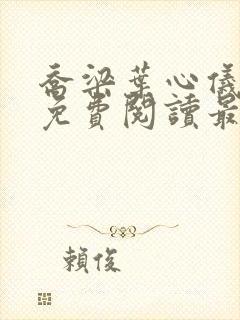 喬梁葉心儀
免費閱讀最
賴俊